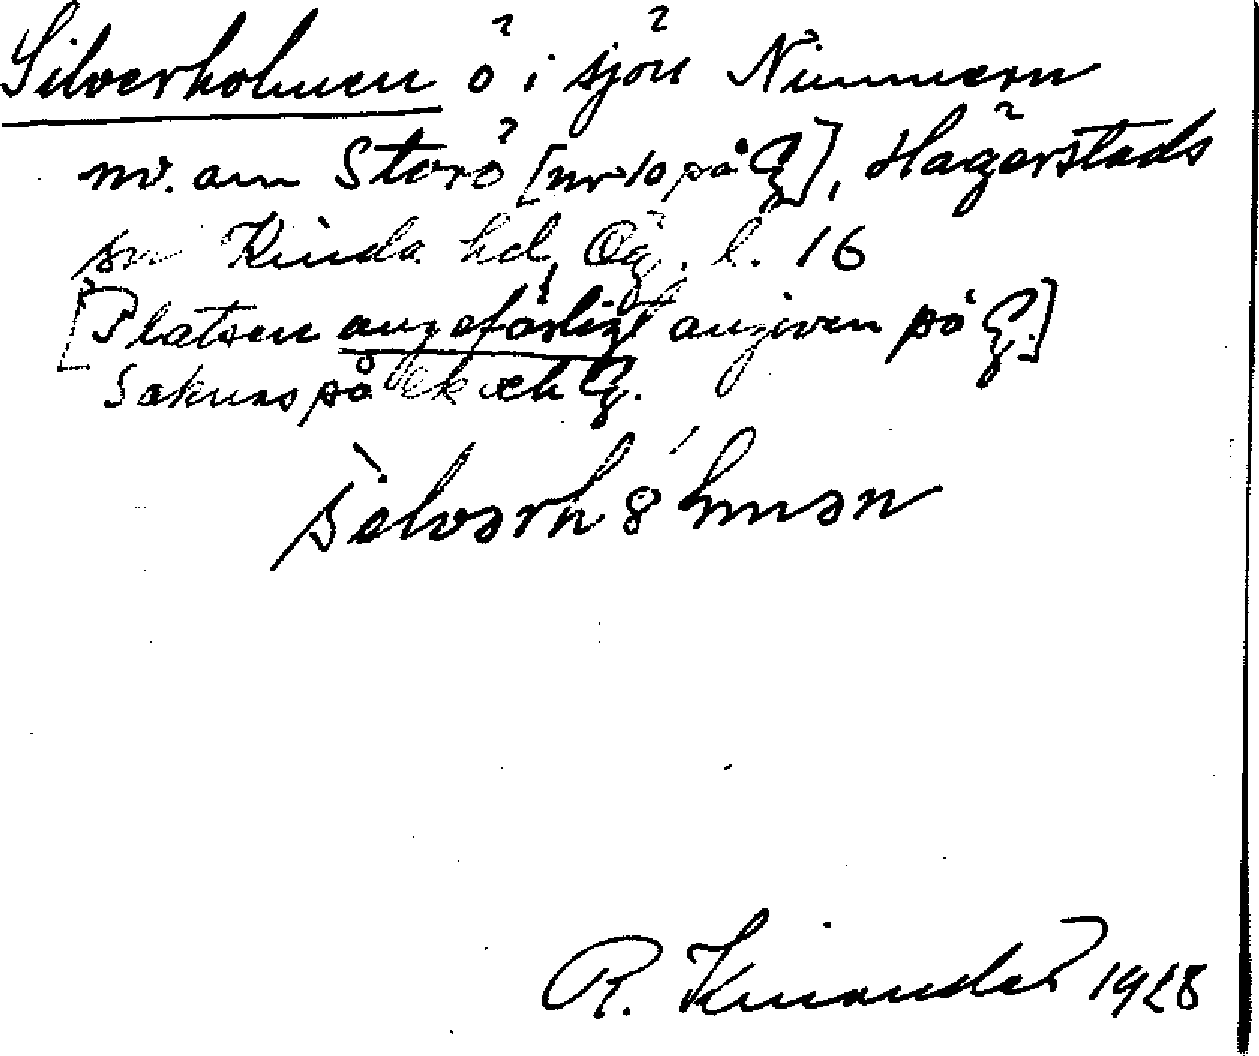 Silverholmen ö i sjön Nimmern
nv. om Storö [nr 10 på G], Hägerstads
sn Kinda hd, Ög. l. 16
[Platsen ungefärligt angiven på G.]
Saknas på ek och G.
R. Kinander 1928